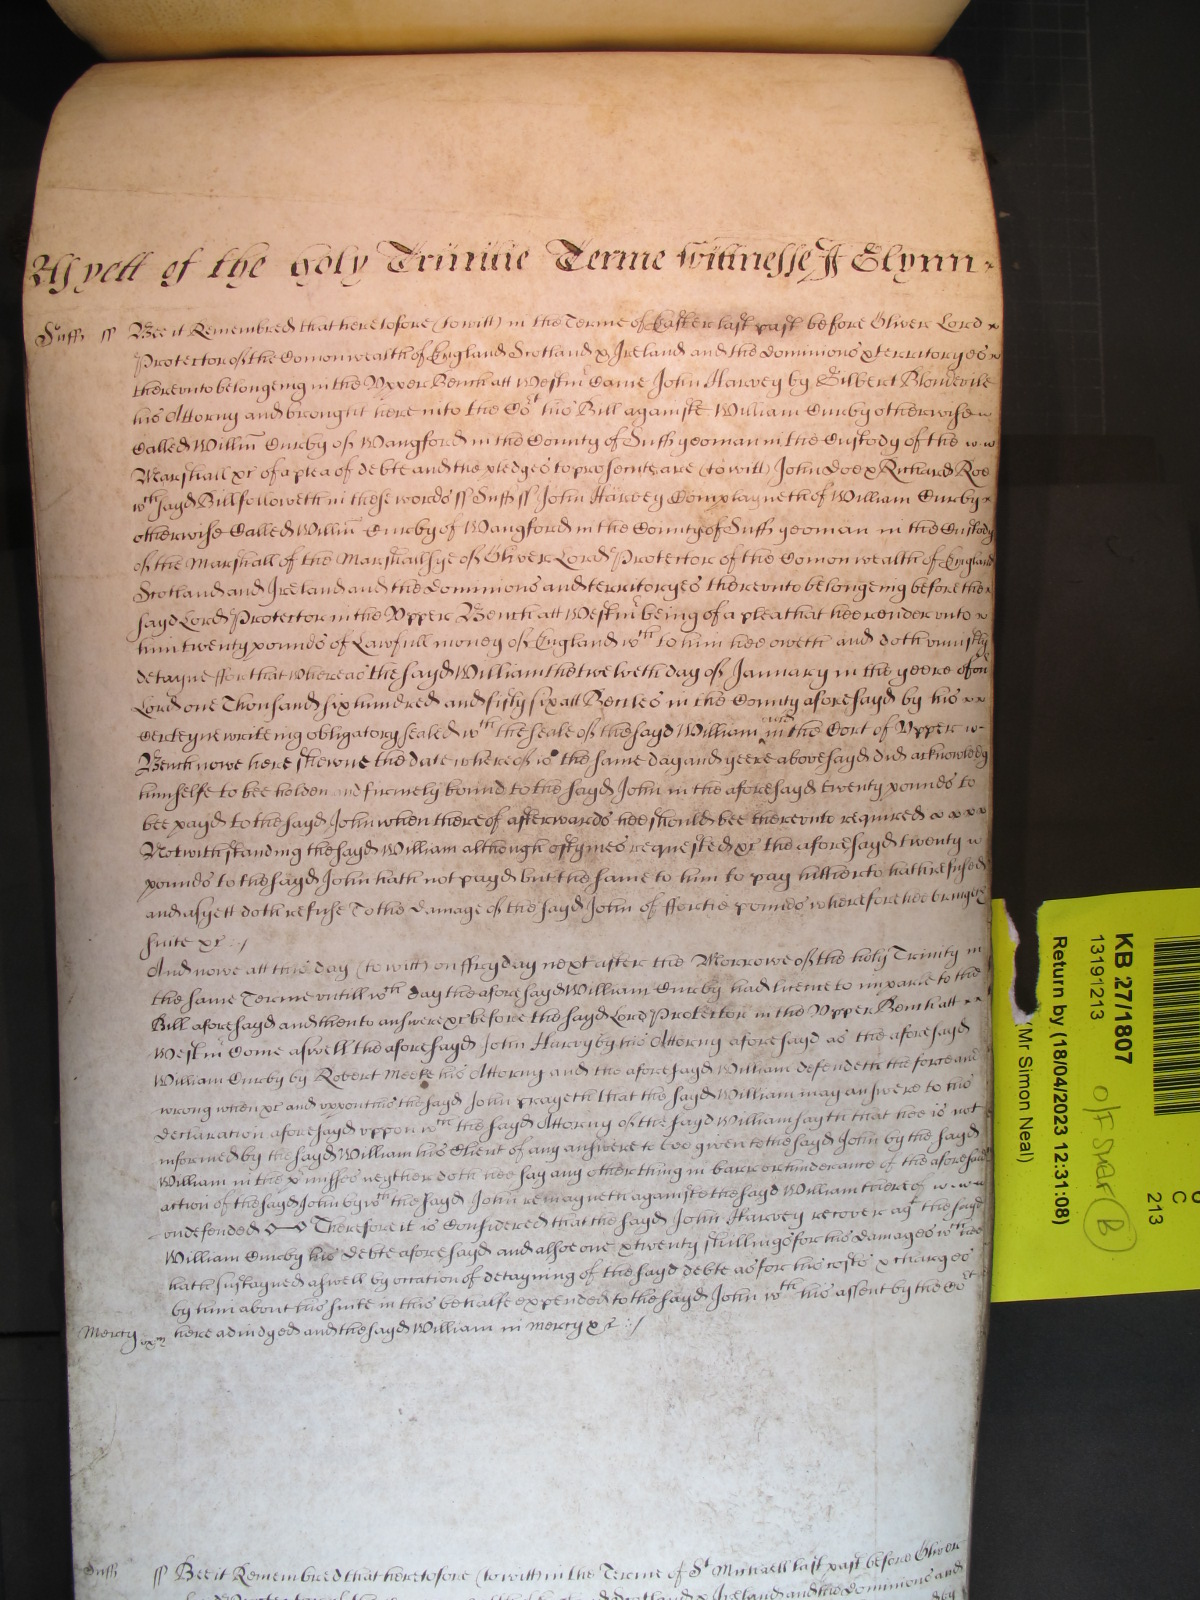 As yett of the holy Trinitie Terme wittnesse J Glynn
Suff ss Bee it Remembred that heretofore (to witt) in the Terme of Easter last past before Oliver Lord
Protector of the Comonwealth of England Scotland & Ireland and the dominions & territoryes
therevnto belongeing in the Vpper Bench att Westm̄ Came John Harvey by Gilbert Blondevile
his Attorny and brought here into the Cort his Bill againste William Cuirby otherwise
Called Willm̄ Cuirby of Wangford in the County of Suff yeoman in the Custody of the
Marshall &c of a plea of debte and the pledges to prosecute are (to witt) John Doe & Richard Roe
wth sayd Bill followeth in these words ss Suff ss John Harvey Complayneth of William Cuirby
otherwise Called Willm̄ Cuirby of Wangford in the County of Suff yeoman in the Custody
of the Marshall of the Marshallsye of Oliver Lord Protector of the Comon wealth of England
Scotland and Ireland and the dominions and territoryes therevnto belongeing before the
sayd Lord Protector in the Vpper Bench att Westm̄ being of a plea that hee render vnto
him twenty pounds of Lawfull money of England wth to him hee oweth and doth vniustly
detayne ffor that whereas the sayd William the twelveth day of January in the yeere of our
Lord one Thousand six hundred and fifty six att Beccles in the County aforesayd by his
certeyne writeing obligatory sealed wth the seale of the sayd William and in the Cort of Vpper
Bench nowe here shewne the date whereof is the same day and yeere abovesayd did acknowledg
himselfe to bee holden and firmely bound to the sayd John in the aforesayd twenty pounds to
bee payd to the sayd John when thereof afterwards hee should bee therevnto required
Notwithstanding the sayd William although oftymes requested &c the aforesayd twenty
pounds to the sayd John hath not payd but the same to him to pay hitherto hath refused
and as yett doth refuse To the damage of the sayd John of ffortie pounds wherefore hee bringeth
suite &c :/
And nowe att this day (to witt) on ffryday next after the Morrowe of the holy Trinity in
the same Terme vntill wth day the aforesayd William Cuirby had licence to imparle to the
Bill aforesayd and then to answere &c before the sayd Lord Protector in the Vpper Bench att
Westm̄ Come aswell the aforesayd John Harvey by his Attorny aforesayd as the aforesayd
William Cuirby by Robert Meeke his Attorny and the aforesayd William defendeth the force and
wrong when &c and vppon this the sayd John prayeth that the sayd William may answere to his
declaration aforesayd vppon wth the sayd Attorny of the sayd William sayth that hee is not
informed by the sayd William his Client of any answere to bee given to the sayd John by the sayd
William in the p̱misses neyther doth hee say any other thing in barr or hinderance of the aforesaid
action of the sayd John by wth the sayd John remayneth againste the sayd William thereof
vndefended Therefore it is Considered that the sayd John Harvey recover agt the sayd
William Cuirby his debte aforesayd and alsoe one & twenty shillings for his damages wth hee
hath sustayned aswell by occation of detayning of the sayd debte as for his costs & charges
by him about his suite in this behalfe expended to the sayd John wth his assent by the Cort
Mercy here adiudged and the sayd William in mercy &c :/
Suff ss Bee it Remembred that heretofore (to witt) in the Terme of St Michaell last past before Oliver
Scotland & Ireland and the dominions and
KB 27/1807
13191213
Return by (18/04/2023 12:31:08)
(Mr Simon Neal)
off shelf (B)
C
213